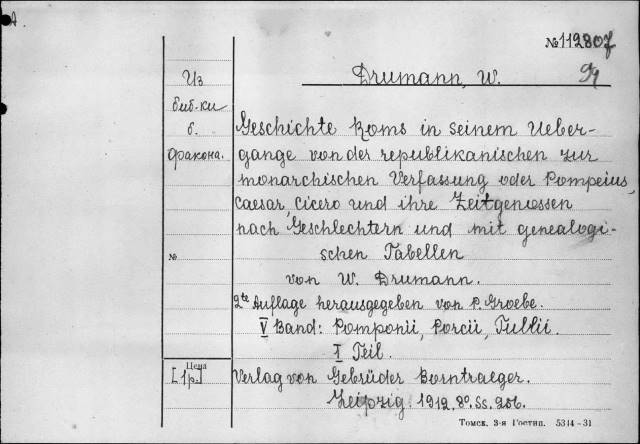 №112807
Drumann, W.
Из
биб-ки
б.
фракона.
Geschichte Roms in seinem Ueber-
gange von der republikanischen zur
monarchischen Verfassung oder Pompeius,
Caesar, Cicero und ihre Zeitgenossen
nach Geschlechtern und mit genealogi-
schen Tabellen
von W. Drumann.
2te Auflage herausgegeben von P. Groebe.
V Band: Pomponii, Porcii, Tullii.
I Teil.
№
Цена
[1р.]
Verlag von Gebrüder Borntraeger.
Leipzig. 1912. 8o. SS. 206.
Томск. 3-я Гостип. 5314-31